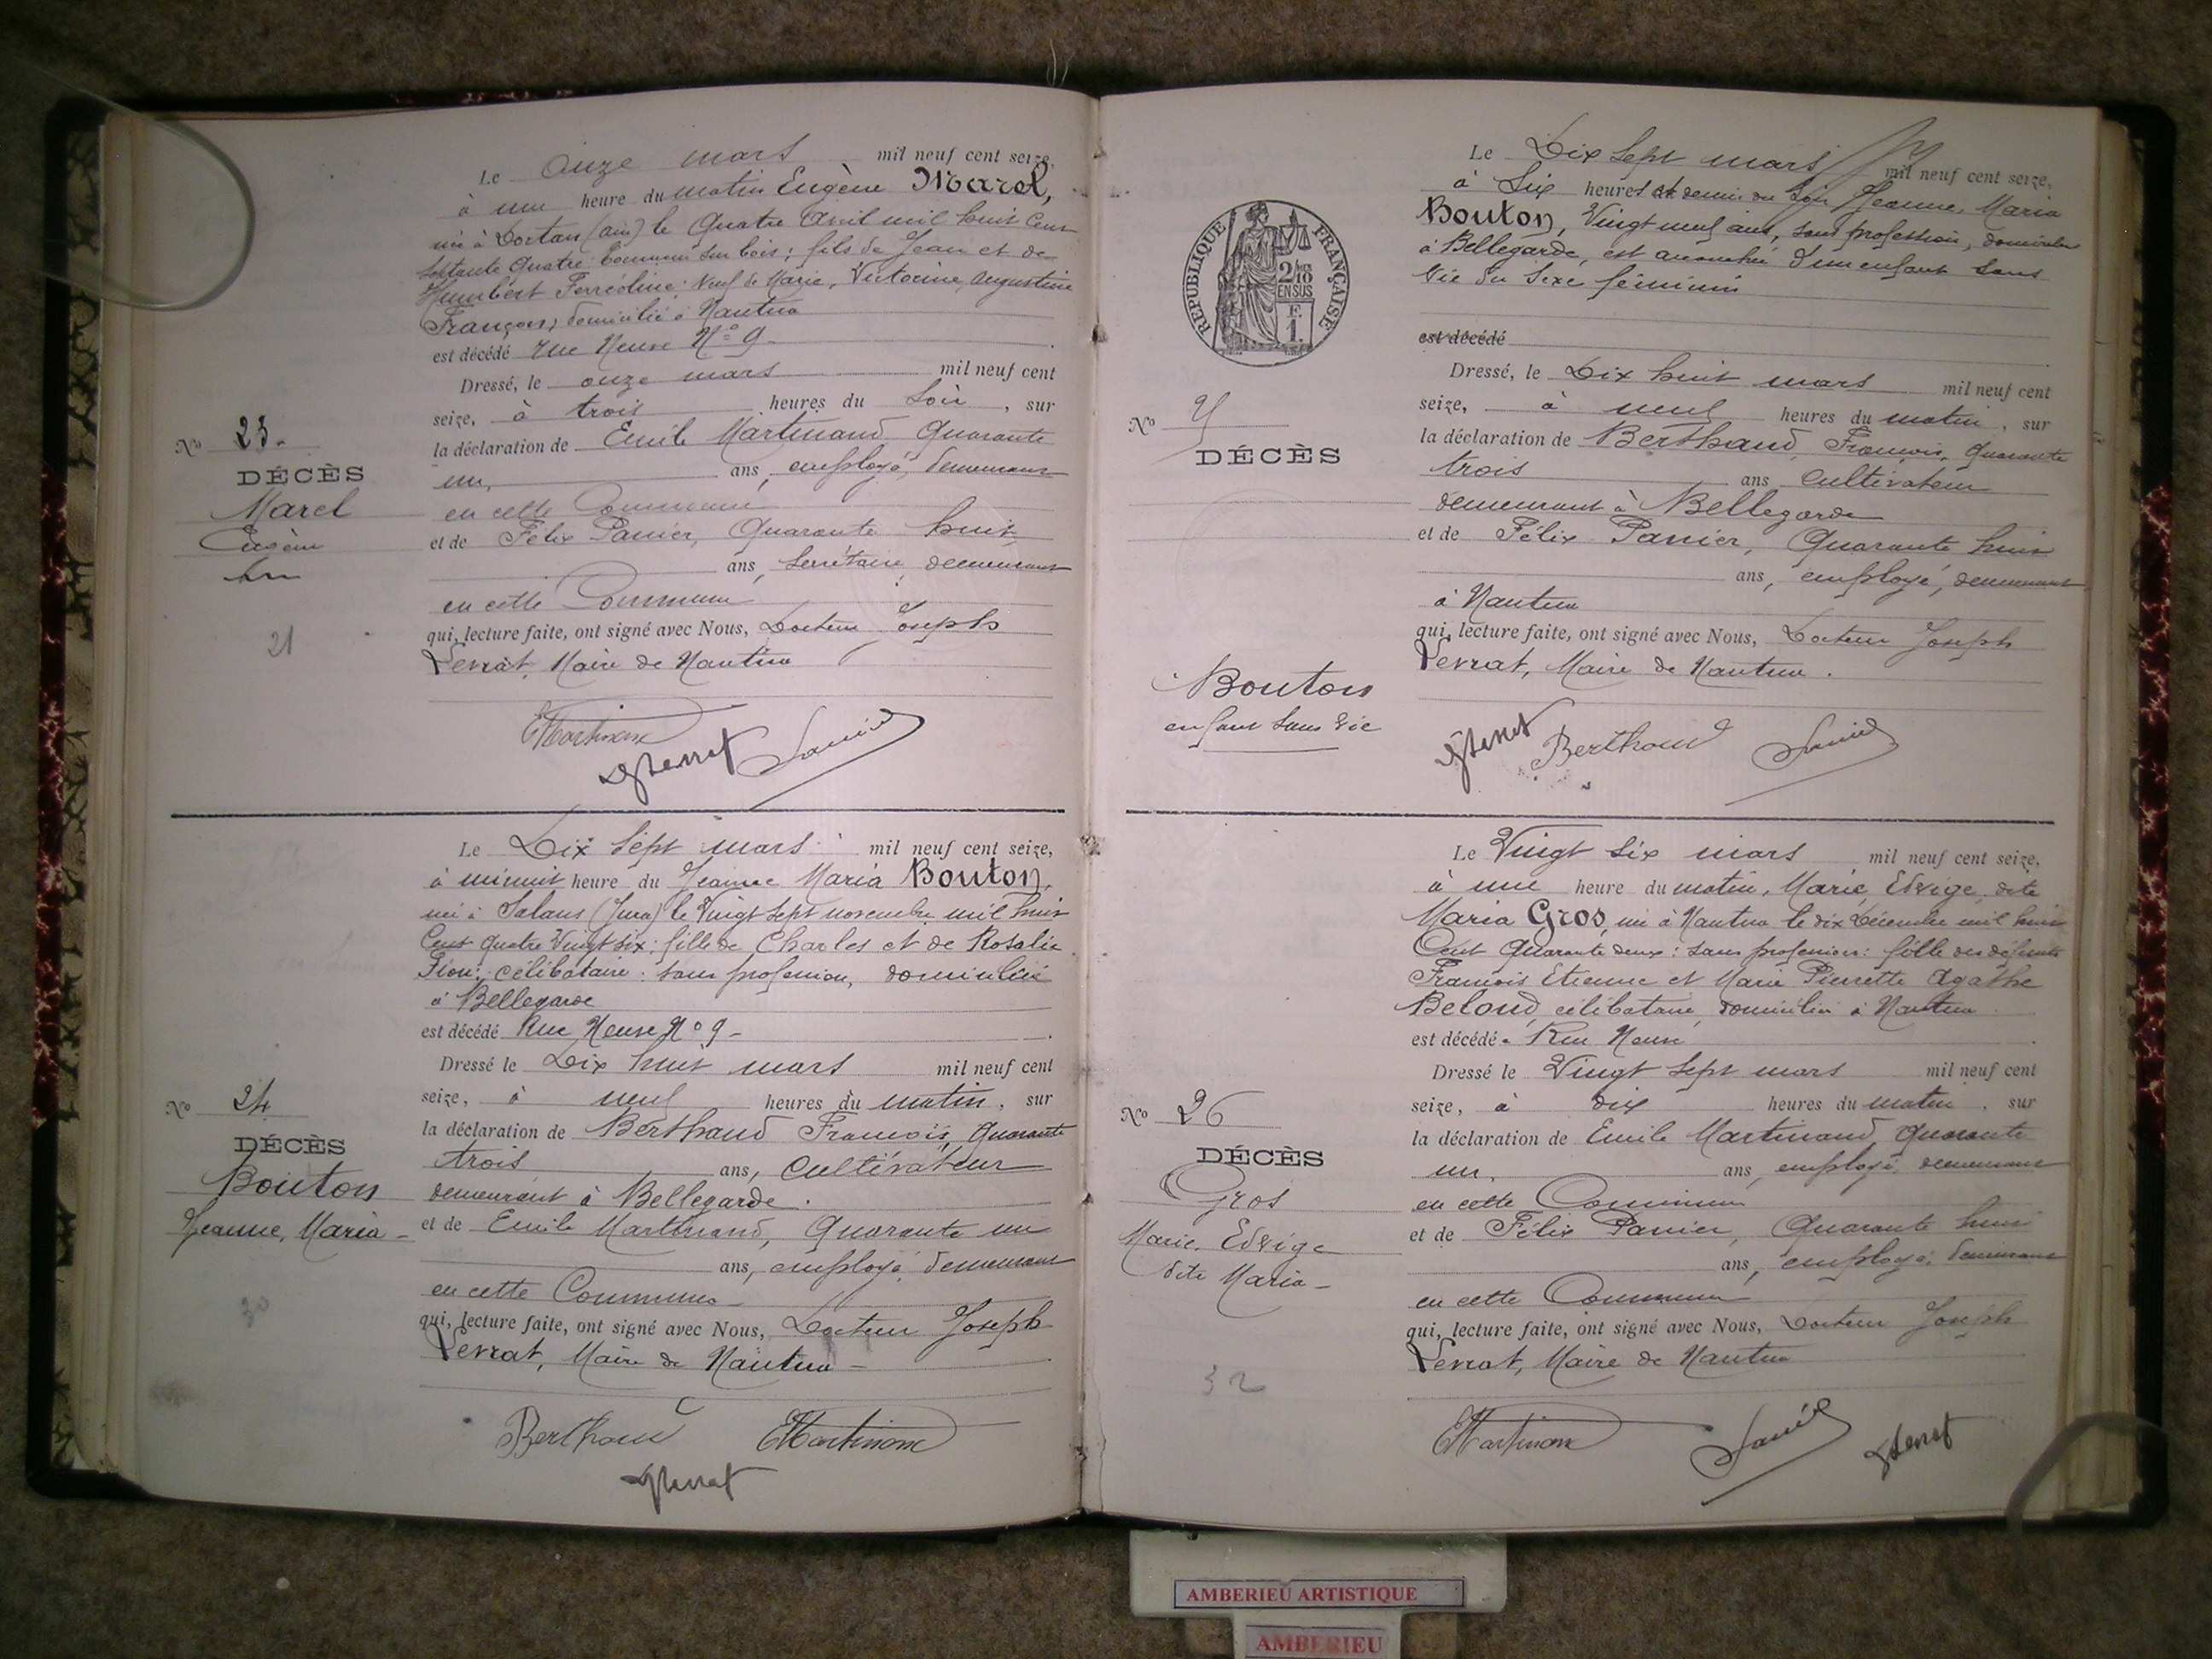 Le onze mars mil neuf cent seize,
à une heure du matin Eugène Marel,
né à Dortan (ain) le Quatre avril mil huit cent
Septante Quatre: tourneur sur bois; fils de Jean et de
Humbert Ferréoline; Veuf de Marie, Victorine, Augustine
François; domicilié à Nantua
est décédé rue Neuve N° 9
Dressé, le onze mars mil neuf cent
seize, à trois heures du Soir, sur
la déclaration de Emile Martinand, Quarante
un, ans, employé, demeurant
en cette Commune
et de Félix Panier, Quarante huit
ans, Secrétaire, demeurant
en cette Commune
qui, lecture faite, ont signé avec Nous, Docteur Joseph
Levrat, Maire de Nantua
No 23.
DÉCÈS
Marel
Eugène
21
Le Dix Sept mars mil neuf cent seize,
à minuit heure du Jeanne Maria Bouton,
née à Salans (Jura) le Vingt Sept novembre mil huit
Cent quatre Vingt six: fille de Charles et de Rosalie
célibataire: sans profession, domiciliée
à Bellegarde
est décédé Rue Neuve N° 9 -
Dressé le Dix huit mars mil neuf cent
seize, à neuf heures du matin, sur
la déclaration de Berthaud François, Quarante
trois ans, Cultivateur
demeurant à Bellegarde.
et de Emile Martinand, Quarante un
ans, employé, demeurant
en cette Commune
qui, lecture faite, ont signé avec Nous, Docteur Joseph
Levrat, Maire de Nantua -
No 24
DÉCÈS
Bouton
Jeanne, Maria -
30
Berthaud EMartinand
Le Dix Sept mars mil neuf cent seize,
à Six heures et demie du Soir Jeanne, Maria
Bouton, Vingt neuf ans, sans profession, domiciliée
à Bellegarde, est accouchée d'un enfant Sans
Vie du Sexe féminin
est décédé
Dressé, le Dix huit mars mil neuf cent
seize, à neuf heures du matin, sur
la déclaration de Berthaud, François, Quarante
trois ans Cultivateur
demeurant à Bellegarde
et de Félix Panier, Quarante huit
ans, employé, demeurant
à Nantua
qui, lecture faite, ont signé avec Nous, Docteur Joseph
Levrat, Maire de Nantua.
REPUBLIQUE FRANÇAISE
2/10 EN SUS
F. 1.
No
DÉCÈS
Bouton
enfant sans vie
Berthaud
Le Vingt Six mars mil neuf cent seize,
à une heure du matin, Marie, Edvige, dite
Maria Gros, née à Nantua le dix Décembre mil huit
Cent Quarante deux: sans profession: fille des défunts
François Etienne et Marie Pierrette Agathe
Beloud, célibataire, domiciliée à Nantua
est décédé. Rue Neuve
Dressé le Vingt Sept mars mil neuf cent
seize, à dix heures du matin, sur
la déclaration de Emile Martinand, Quarante
un, ans, employé, demeurant
en cette Commune
et de Félix Panier, Quarante huit
ans, employé, demeurant
en cette Commune
qui, lecture faite, ont signé avec Nous, Docteur Joseph
Levrat, Maire de Nantua
No 26
DÉCÈS
Gros
Marie, Edvige
dite Maria -
32
EMartinand
AMBERIEU ARTISTIQUE
AMBERIEU